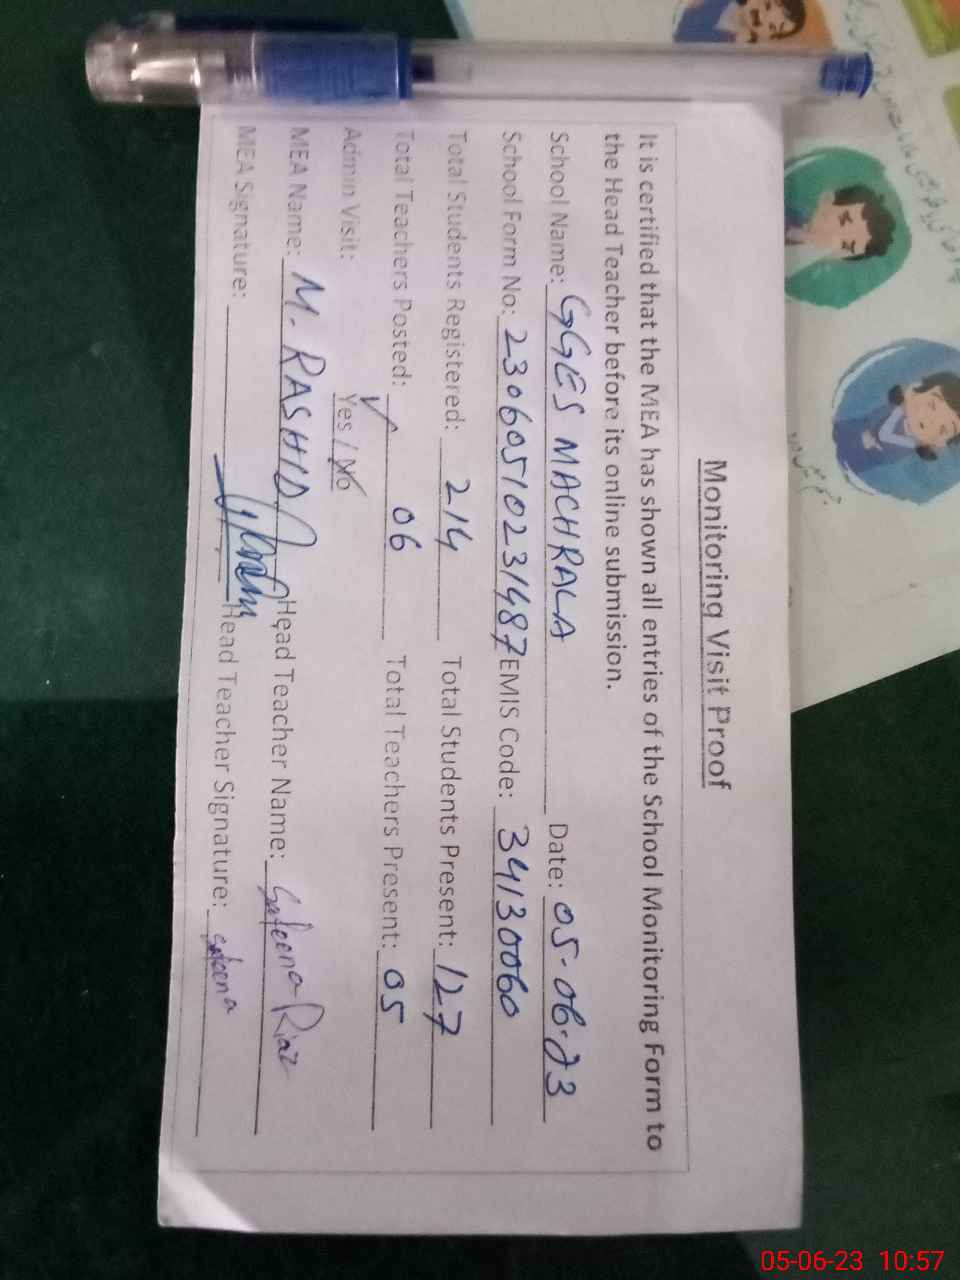 Monitoring Visit Proof
It is certified that the MEA has shown all entries of the School Monitoring Form to
the Head Teacher before its online submission.
School Name: GGES MACHRALA Date: 05-06-23
School Form No: 23060510231487 EMIS Code: 34130060
Total Students Registered: 214 Total Students Present: 127
Total Teachers Posted: 06 Total Teachers Present: 05
Admin Visit: Yes / No
MEA Name: M. RASHID Head Teacher Name: Safeena Riaz
MEA Signature: Head Teacher Signature: safeena
05-06-23 10:57